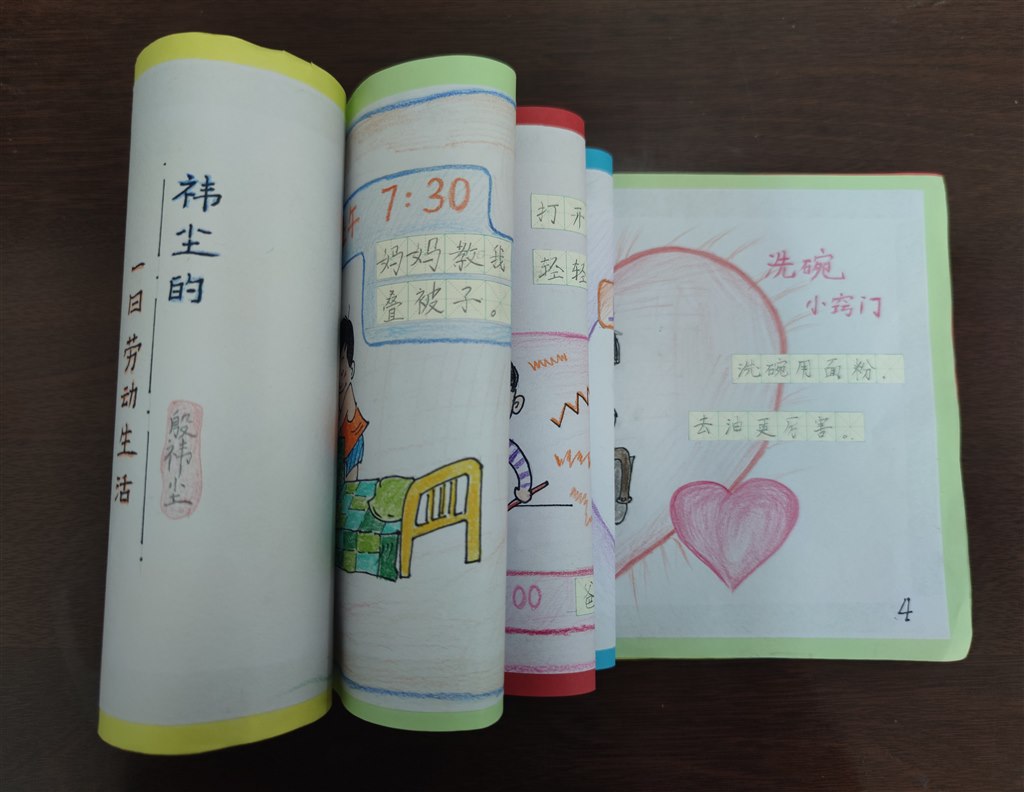 祎尘的
一日劳动生活
殷祎尘
午 7:30
妈妈教我
叠被子。
打开
轻轻
00
爸
洗碗
小窍门
洗碗用面粉.
去油更厉害。
4